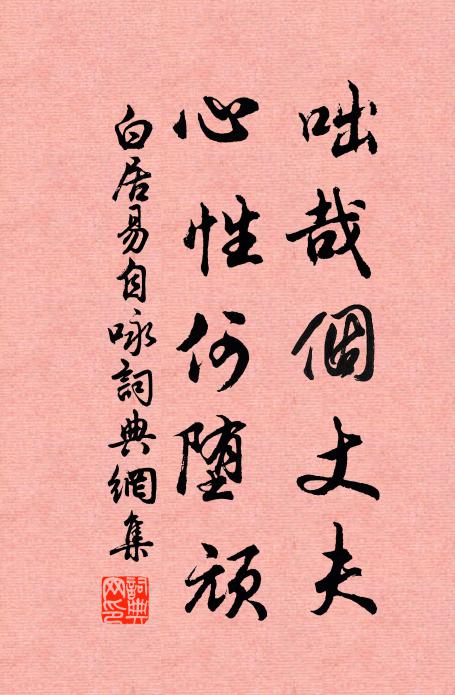 咄哉個丈夫
心性何墮頑
白居易自咏詞典網集
詞典網印